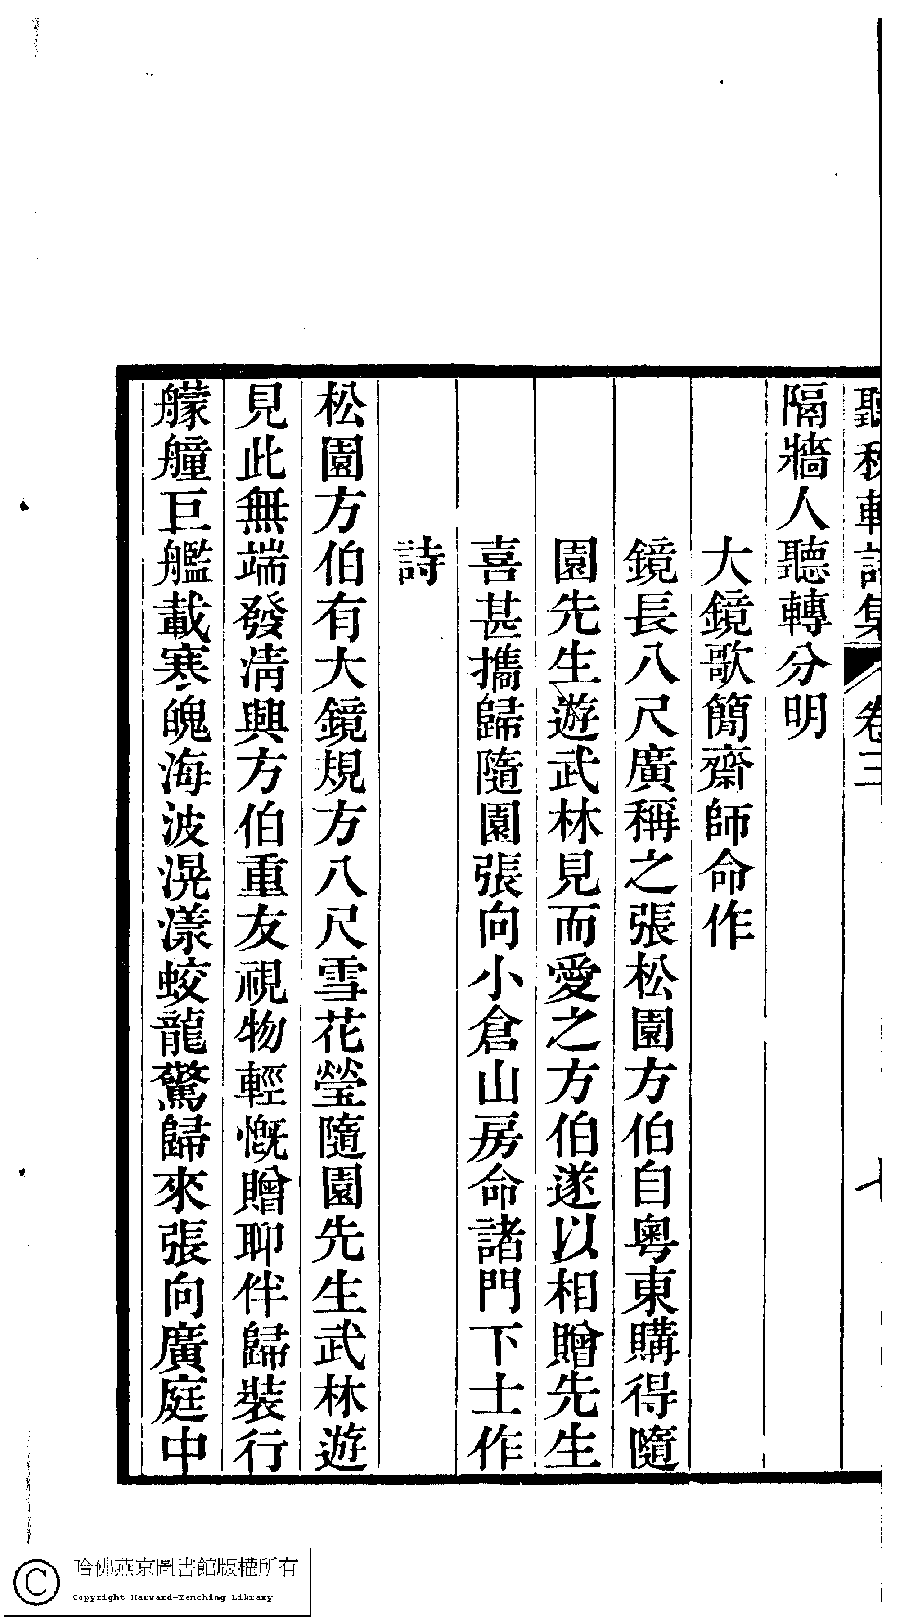 聽秋軒詩集 卷三
隔牆人聽轉分明
大鏡歌簡齋師命作
鏡長八尺廣稱之張松園方伯自粵東購得隨
園先生遊武林見而愛之方伯遂以相贈先生
喜甚攜歸隨園張向小倉山房命諸門下士作
詩
松園方伯有大鏡規方八尺雪花瑩隨園先生武林遊
見此無端發淸興方伯重友視物輕慨贈聊伴歸裝行
艨艟巨艦載寒魄海波滉漾蛟龍驚歸來張向廣庭中
哈佛燕京圖書館版權所有
Copyright Harvard-Yenching Library